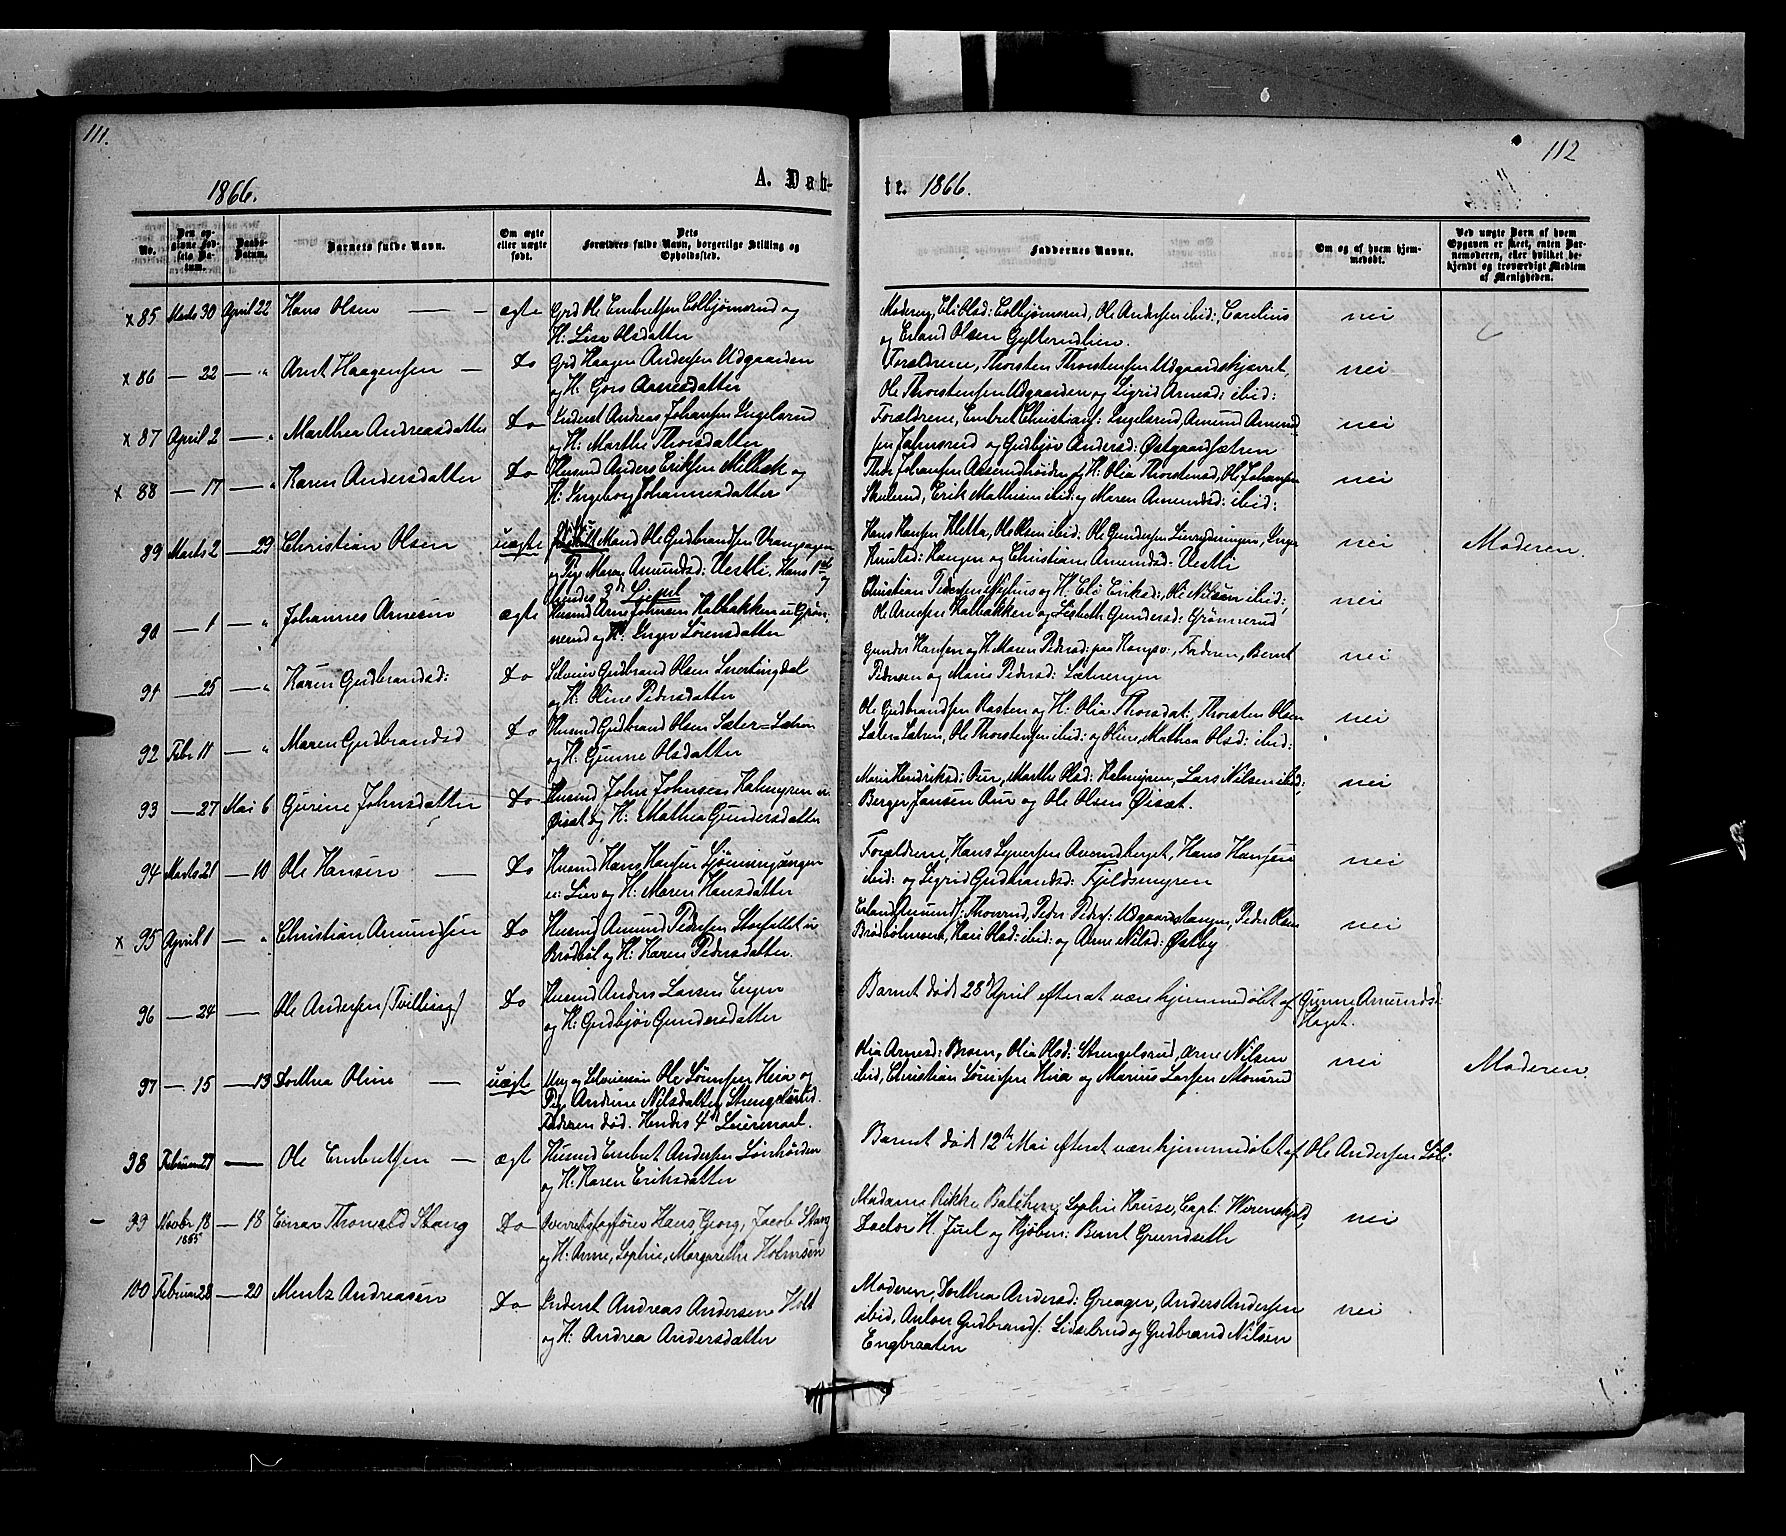 111.
112
1866.
A. Døb-
te. 1866.
No.
Den opgivne Fødsels Datum.
Daabs-Datum.
Barnets fulde Navn.
Om ægte eller uægte født.
Dets Forældres fulde Navn, borgerlige Stilling og Opholdssted.
Faddernes Navne.
Om og af hvem hjemmedøbt.
Ved uægte Børn af hvem Opgaven er skeet, enten Barnemoderen, eller hvilket bekjendt og troværdigt Medlem af Menigheden.
x 85 Marts 30 April 22 Hans Olsen — ægte Grd Ole Embretsen og
H: Lise Olsdatter
Ole Andersen ibid:,
og Erland Olsen
nei
x 86 — 22 — " Arnt Haagensen — Do Grd Haagen Andersen Udgaarden
og H: Goro Arnesdatter
Forældrene, Thorsten Thorstensen Udgaardskjærret,
Ole Thorstensen Udgaarden og Sigrid Arnesd: ibid:
nei
x 87 April 2 — " Marthea Andreasdatter Do Inderst Andreas Johansen Ingelsrud
og H: Marthe Thorsdatter
Forældrene, Embret Christians: Ingelsrud, Amund Amund
sen Jahnsrud og Gudbjør Andersd:
nei
x 88 — 17 — " Karen Andersdatter Do Husmd Anders Eriksen Melbæk og
H: Ingeborg Johannesdatter
Thor Johansen og H: Olia Thorstensd, Ole Johansen
Skulerud, Erik Mathisen ibid: og Maren Amundsd: ibid:
nei
89 Marts 2 — 29 Christian Olsen uægte Mand Ole Gudbrandsen
og Pige Maren Amundsd: Vestli. Hans 1ste og
hendes 3de
Hans Hansen Kletta, Ole Olsen ibid: Ole Gundersen Inger
Knutsd: Haugen og Christiane Amundsd: Vestli
nei
Moderen.
90 — 1 — " Johannes Arnesen ægte Husmd Arne Johnsen Kalbakken u: Grøn-
nerud og H: Inger Sørensdatter
Christian Pedersen og H: Eriksd:, Ole Nilsen ibid:,
Ole Arnesen Kalbakken og Lisbeth Gundersd: Grønnerud
nei
91 — 25 — " Karen Gudbrandsd: Do Selveier Gudbrand Olsen
og H: Oline Pedersdatter
Gunder Hansen og H: Maren Pedersd: Faderen, Bernt
Pedersen og Marie Pedersd:
nei
92 Febr 11 — " Maren Gudbrandsd Do Husmd Gudbrand Olsen Sæter=
og H: Gunne Olsdatter
Ole Gudbrandsen Rasten og H: Olia Thorsdat:, Thorsten Olsen
Ole Thorstensen ibid: og Oline Mathea Olsd: ibid:
nei
93 — 27 Mai 6 Gurine Johnsdatter Do Husmd John Johnsen Kalmyren u:
Øisæt og H: Mathea Gundersdatter
Marie Hendriksd: Aur, Marthe Olsd: Kalmyren, Lars Nilsen ibid:
Berger Jansen Aur og Ole Olsen Øisæt.
nei
94 Marts 21 — 10 Ole Hansen — Do Husmd Hans Hansen
u: Lier og H: Maren Hansdatter
Forældrene, Hans Syversen Hans Hansen
ibid: og Sigrid Gudbrandsd: Fjeldsmyren
nei
x 95 April 1 — " Christian Amundsen Do Husmd Amund Pedersen u
Brødbøl og H: Karen Pedersdatter.
Erland Amunds: Peder Peders: Udgaardstangen, Peder Olsen
Kari Olsd: ibid: og Arne Nilsd: Østby
nei
96 — 24 — Ole Andersen (Tvilling) Do Husmd Anders Larsen Engen
og H: Gudbjør Gundersdatter
Barnet døde 28de April efter at være hjemmedøbt af Gunne Amundsd:
Haget.
97 — 15 — 13 Dorthea Oline — uægte Ung og Selveiersøn Ole Sørensen Heia og
Pige Andrine Nilsdatter Strengelsrud.
Faderen død. Hendes 4de Leiermaal.
Olia Arnesd: Olia Olsd: Strengelsrud, Arne Nilsen
ibid, Christian Sørensen Heia og Marius Larsen Monsrud
nei
Moderen.
98 Februar 27 — Ole Embretsen — ægte Husmd Embret Andersen
og H: Karen Eriksdatter
Barnet døde 12te Mai efter at være hjemmedøbt af Ole Andersen
99 Novbr 18 1865 — 18 Einar Thorvald Stang Do Overretssagfører Hans, Georg, Jacob Stang
og H: Anne, Sophie, Margarethe Holmsen
Madame Rikke Balchen, Sophie Capt: Werenskjold,
Doctor H. Juel og Kjøbm: Bernt Grundseth
nei
100 Februar 28 — 20 Mentz Andreasen Do Inderst Andreas Andersen Holt
og H: Andrea Andersdatter
Moderen, Dorthea Andersd: Greager, Anders Andersen
ibid, Anton Gudbrands: og Gudbrand Nilsen
Engbraaten
nei